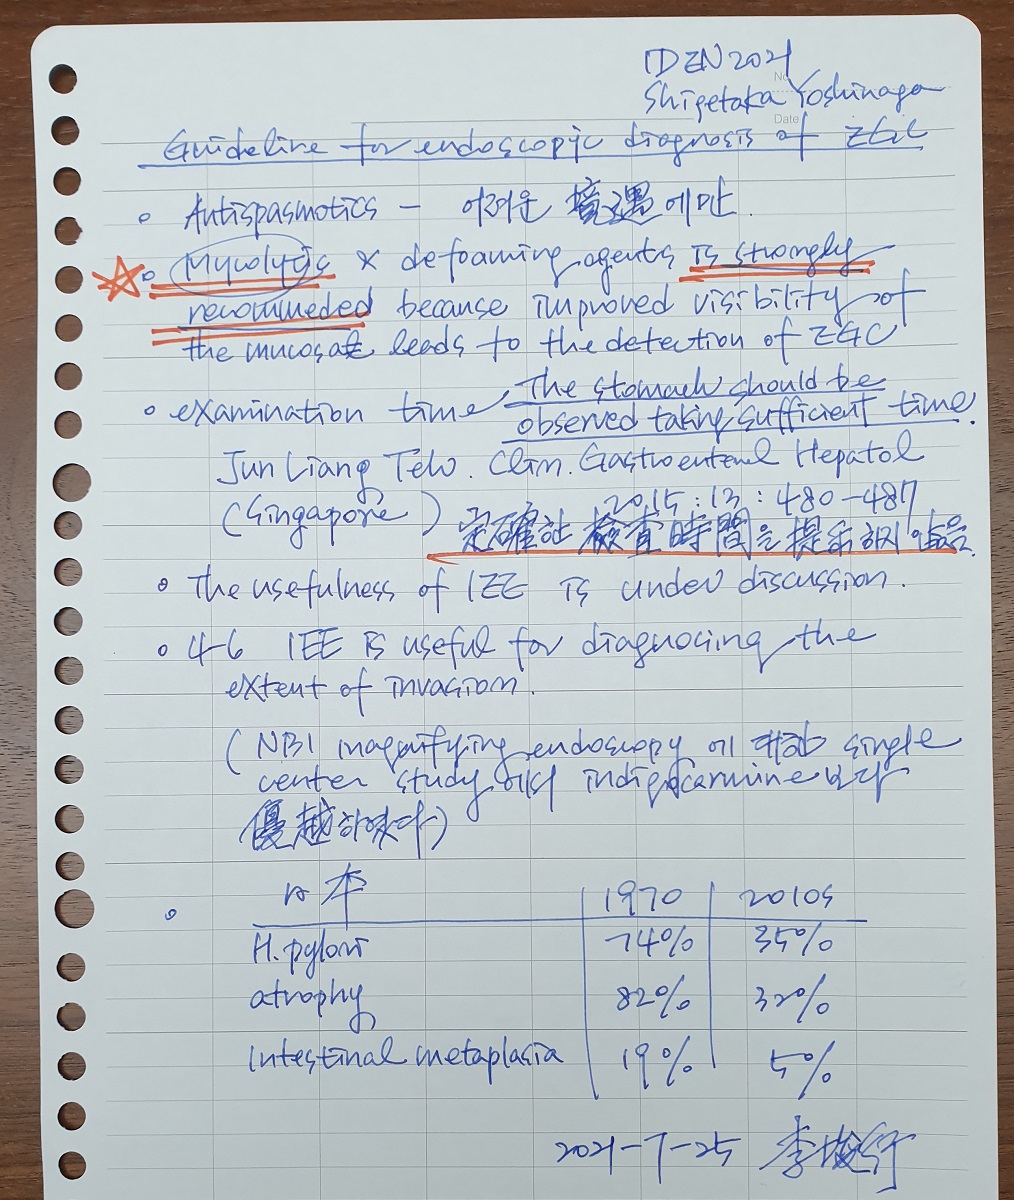 IDEN 2021
No.
Shigetaka Yoshinaga
Date
Guideline for endoscopic diagnosis of EGC
◦ Antispasmotics – 어려운 境遇에만.
☆◦ Mycolytic & defoaming agents is strongly
recommeded because improved visibility of
the mucosae leads to the detection of EGC
◦ examination time, The stomach should be
observed taking sufficient time.
Jun Liang Teh. Clin. Gastroenterol Hepatol
(Singapore) 2015 : 13 : 480-487
檢査時間을 提示하지 않음.
◦ The usefulness of IEE is under discussion.
◦ 4-6 IEE is useful for diagnocing the
extent of invasion.
(NBI magnifying endoscopy에 대한 single
center study에서 indigocarmine보다
優越하였다)
◦ 日本 1970 2010s
H. pylori 74% 35%
atrophy 82% 32%
Intestinal metaplasia 19% 5%
2021-7-25 李